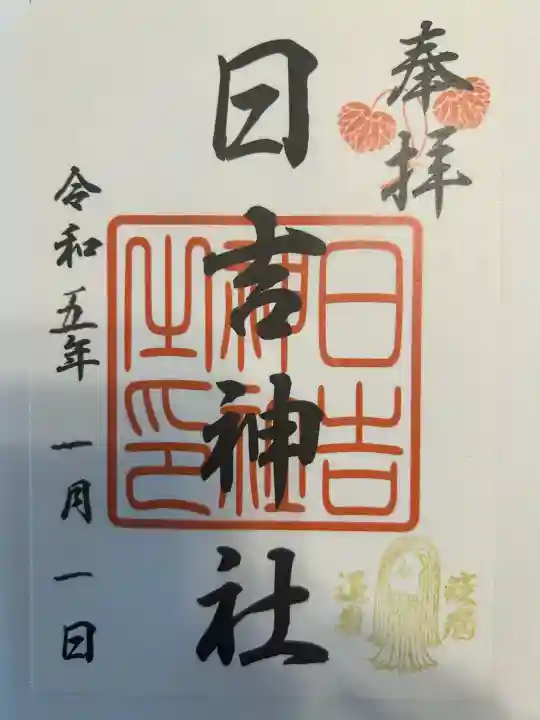 奉拝
日吉神社
日吉
神社
之印
令和五年 一月一日
疫病
退散